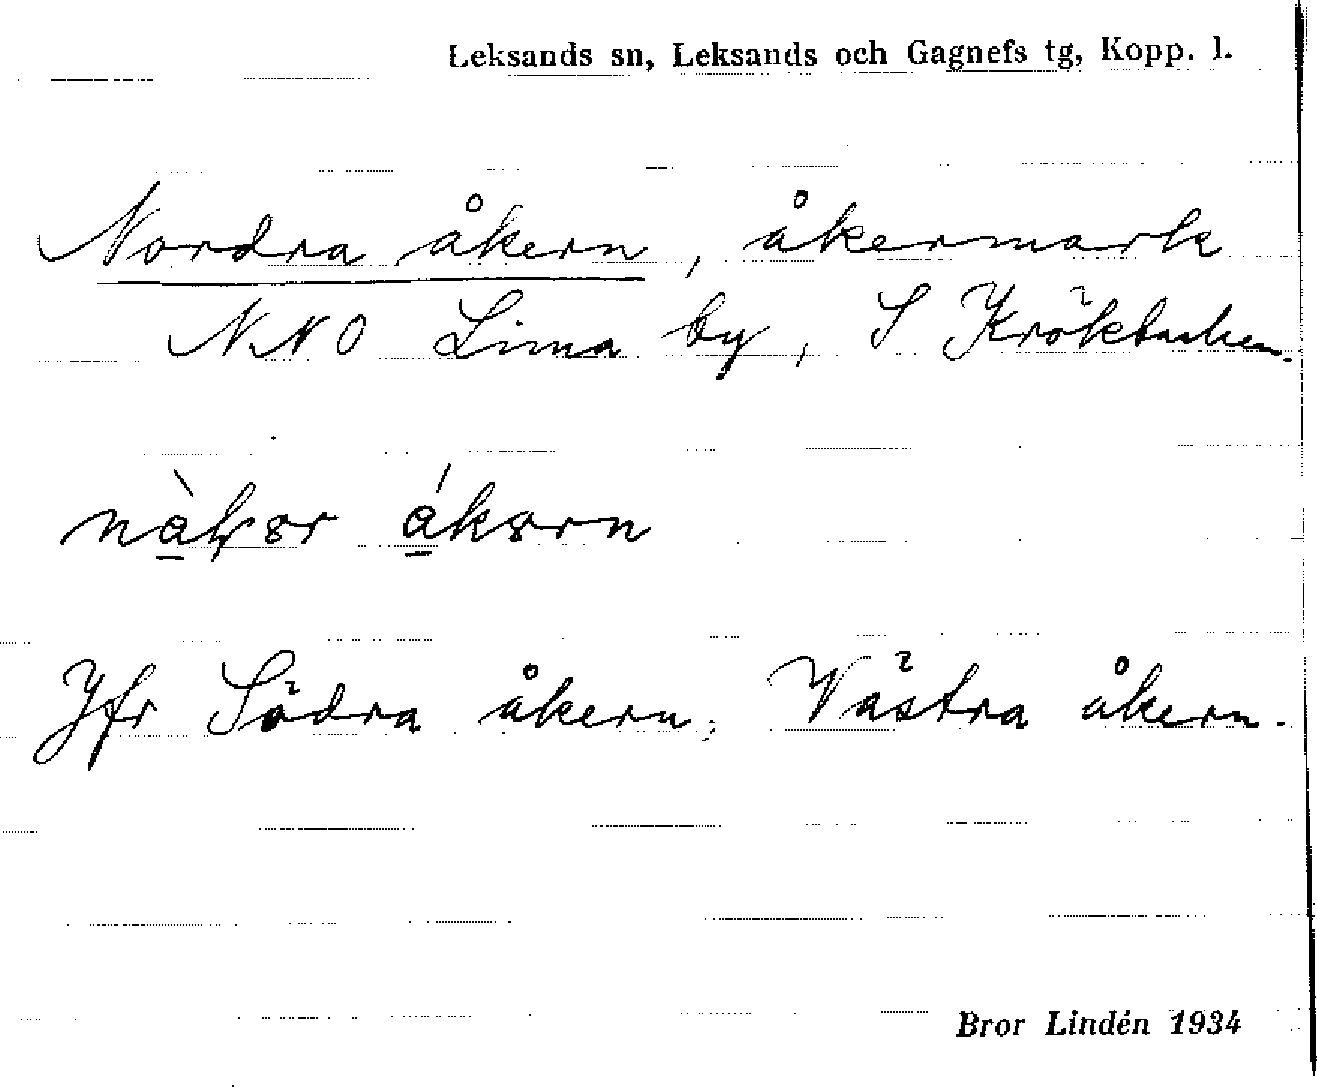 Leksands sn, Leksands och Gagnefs tg, Kopp. l.
Nordra åkern, åkermark
NNO Lima by, S Krökbacken.
Jfr Södra åkern; Västra åkern.
Bror Lindén 1934